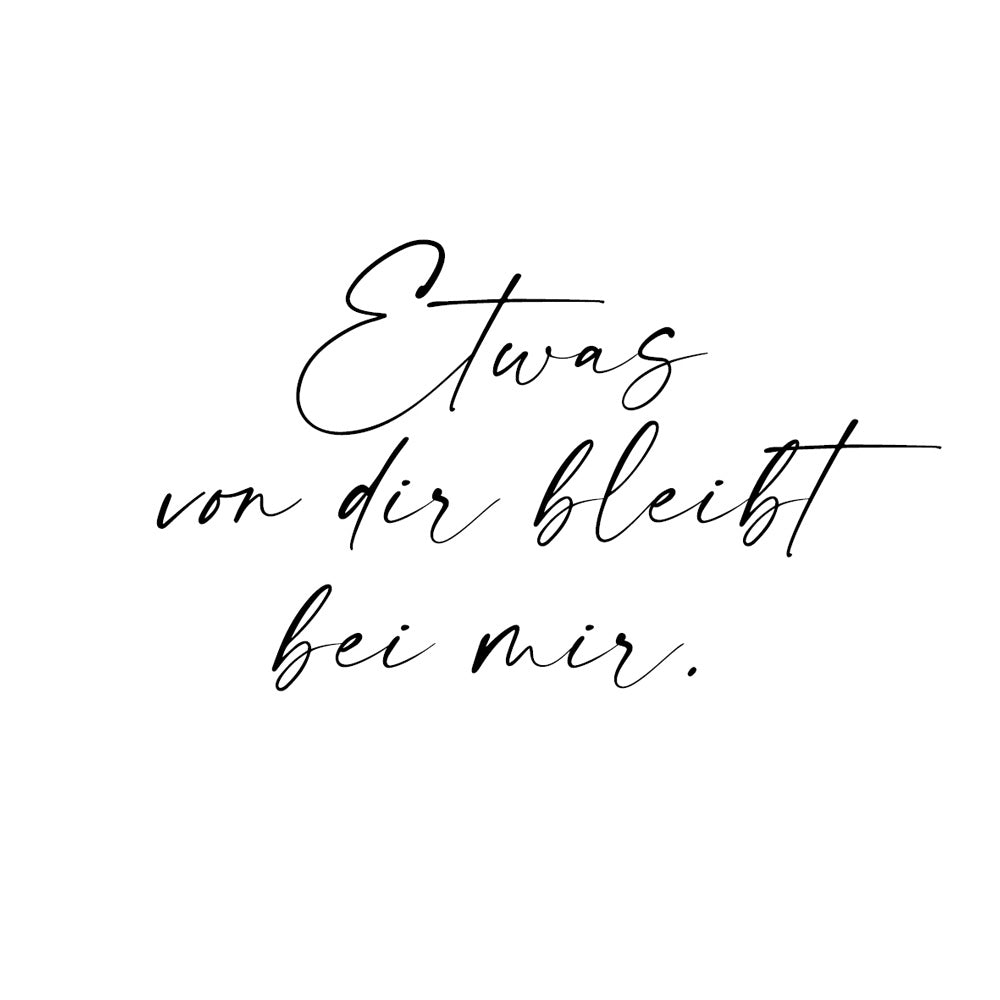 Etwas
von dir bleibt
bei mir.